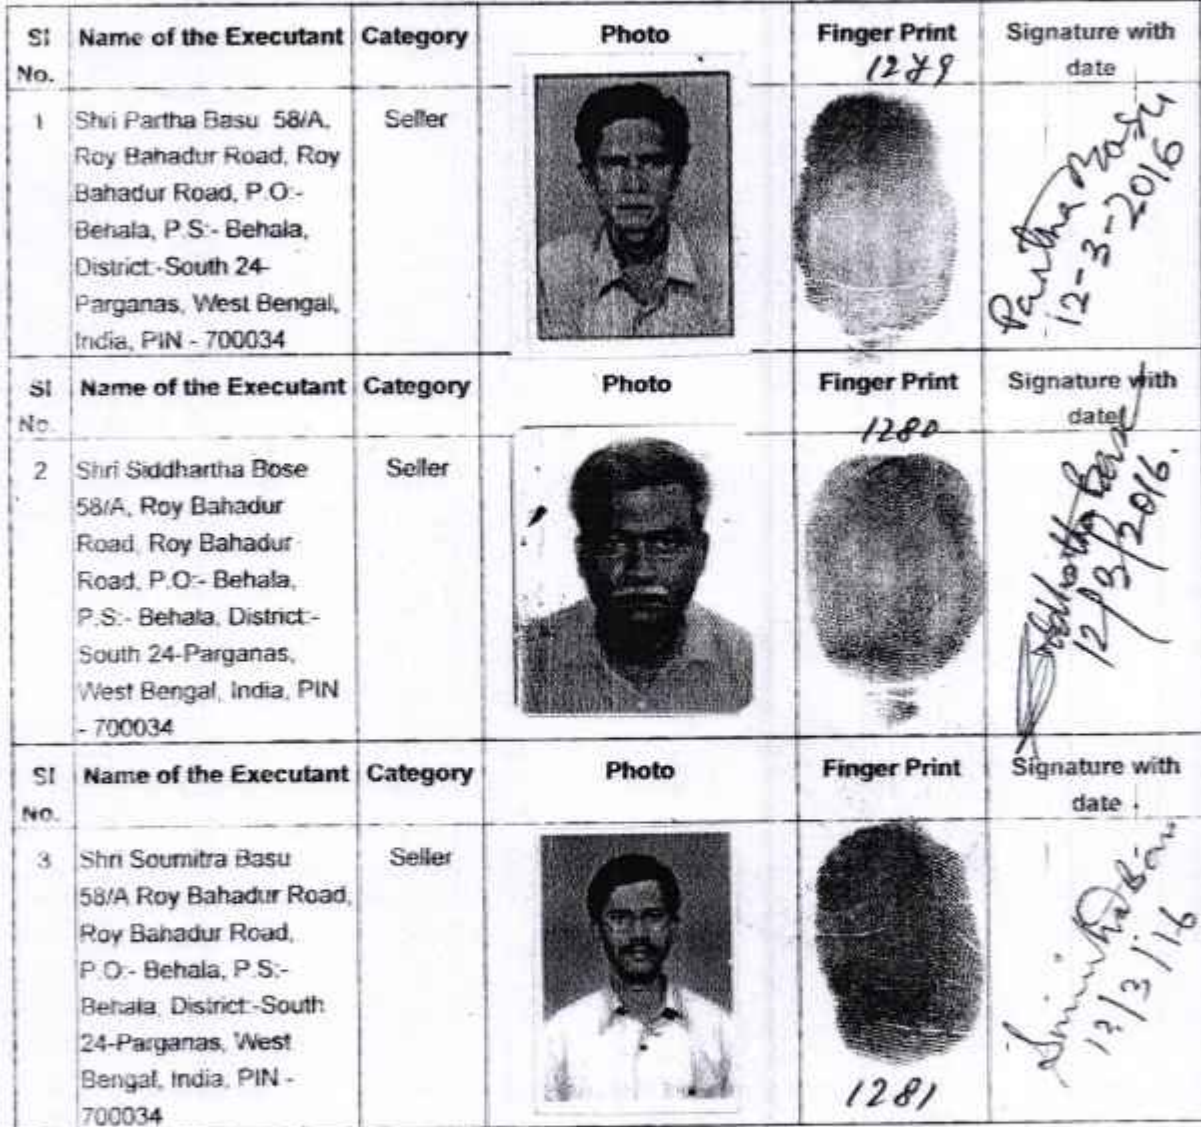 Sl No. Name of the Executant Category Photo Finger Print Signature with date
1279
1 Shri Partha Basu 58/A, Seller
Roy Bahadur Road, Roy
Bahadur Road, P.O:-
Behala, P.S:- Behala,
District:-South 24-
Parganas, West Bengal,
India, PIN - 700034
Partha Basu
12-3-2016
Sl No. Name of the Executant Category Photo Finger Print Signature with date
1280
2 Shri Siddhartha Bose Seller
58/A, Roy Bahadur
Road, Roy Bahadur
Road, P.O:- Behala,
P.S:- Behala, District:-
South 24-Parganas,
West Bengal, India, PIN
- 700034
Siddhartha Bose
12/3/2016.
Sl No. Name of the Executant Category Photo Finger Print Signature with date
3 Shri Soumitra Basu Seller
58/A Roy Bahadur Road,
Roy Bahadur Road,
P.O:- Behala, P.S:-
Behala, District:-South
24-Parganas, West
Bengal, India, PIN -
700034
1281
12/3/16